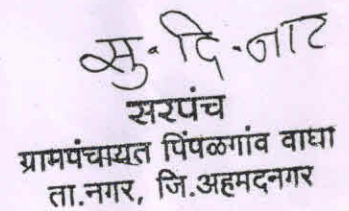 सु. दि. नाट
सरपंच
ग्रामपंचायत पिंपळगांव वाघा
ता.नगर, जि.अहमदनगर